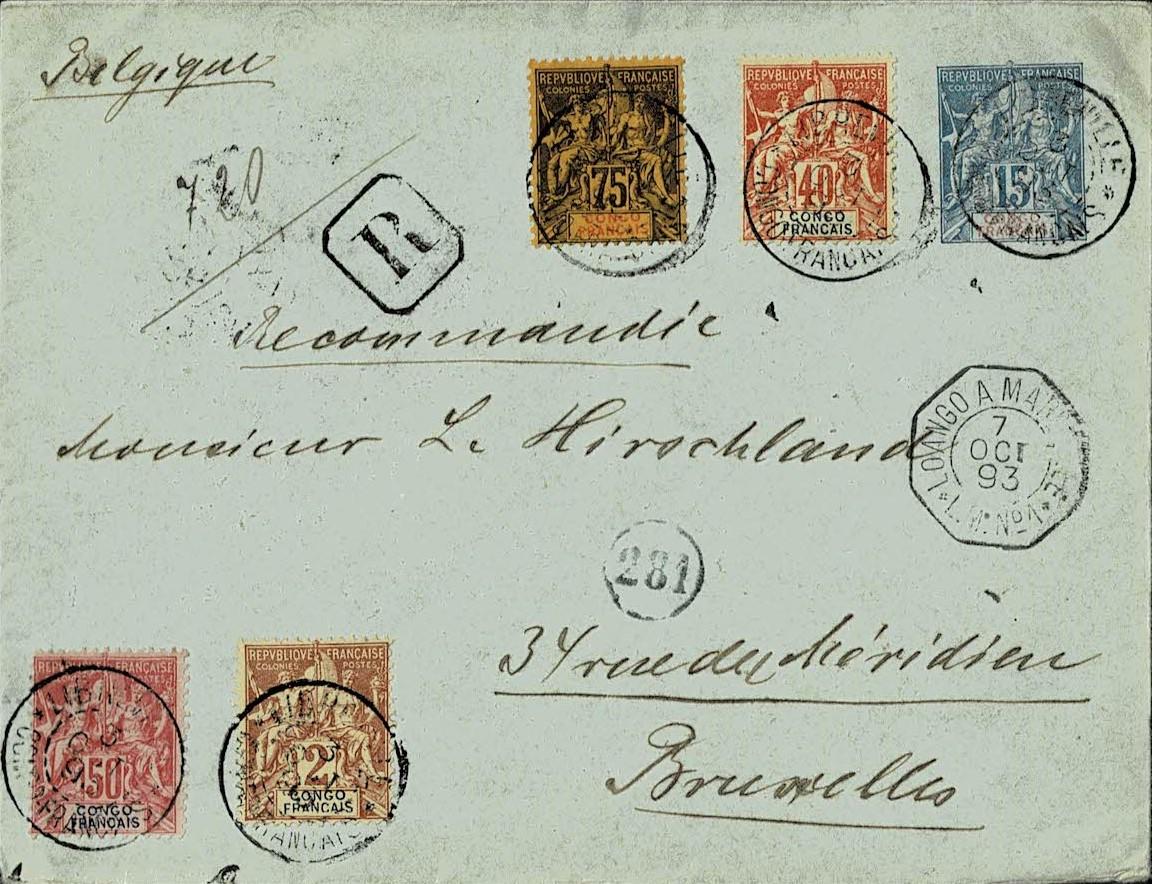 Belgique
REPVBLIQVE FRANÇAISE
COLONIES POSTES
75
CONGO
FRANÇAIS
REPVBLIQVE FRANÇAISE
COLONIES POSTES
40
CONGO
FRANÇAIS
REPVBLIQVE FRANÇAISE
COLONIES POSTES
15
CONGO
FRANÇAIS
720
R
Recommandée
Monsieur L. Hirschland
LOANGO A MARSEILLE
7
OCT
93
L.M. No1
281
34 rue du Méridien
Bruxelles
REPVBLIQVE FRANÇAISE
COLONIES POSTES
50
CONGO
FRANÇAIS
REPVBLIQVE FRANÇAISE
COLONIES POSTES
2
CONGO
FRANÇAIS